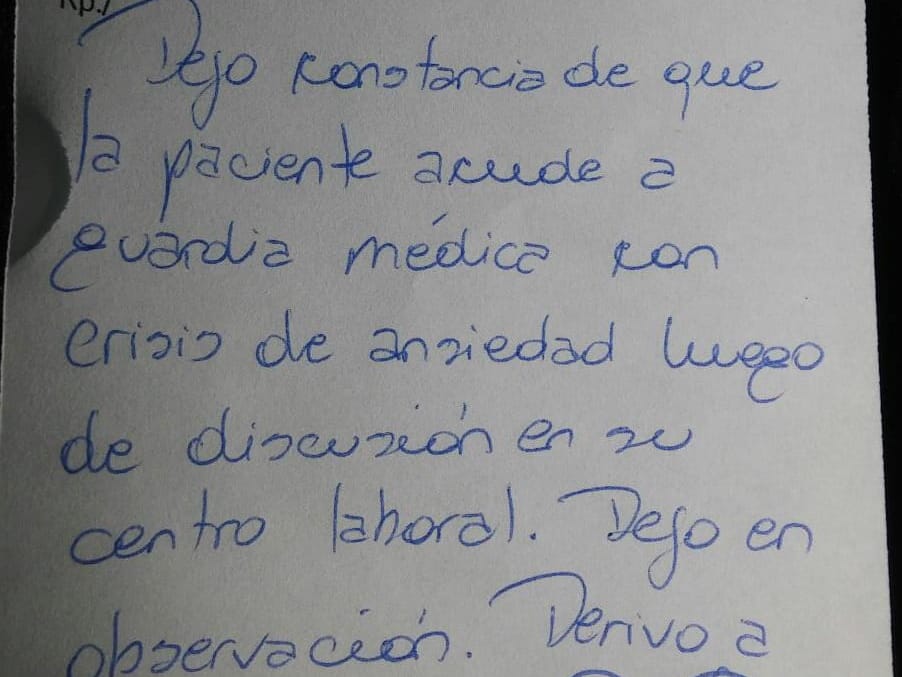 Rp./
Dejo constancia de que
la paciente acude a
guardia médica con
crisis de ansiedad luego
de discusión en su
centro laboral. Dejo en
observación. Derivo a